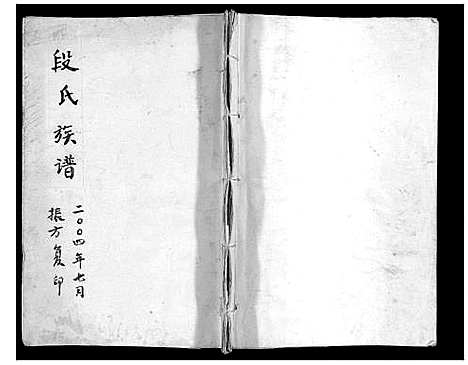 段氏族谱
二〇〇四年七月
振方复印